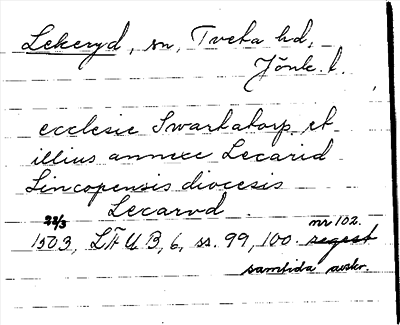 Lekeryd, sn, Tveta hd,
Jönk. l.
ecclesie Swartatorp et
illius annexe Lecarid
Lincopensis diocesis
Lecarvd.
22/3
1503, LÄUB, 6, ss. 99, 100. nr 102. regest
samtida avskr.